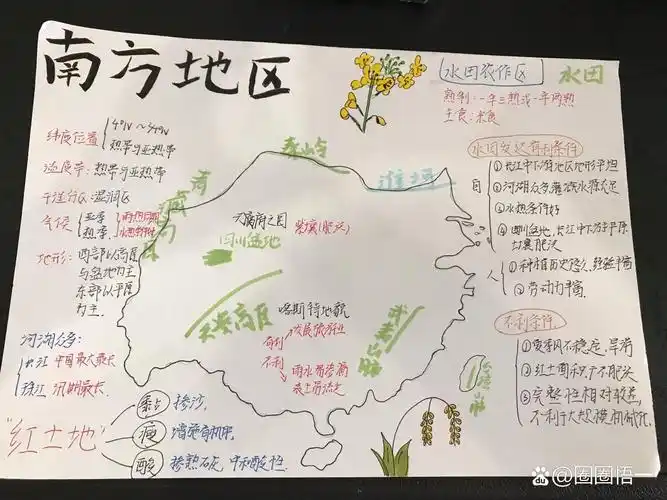 南方地区
水田农作区
水田
熟制:一年三熟或一年两熟
主食:米食
纬度位置
热带与亚热带
温度带:热带与亚热带
干湿分区:湿润区
气候
亚季
热季
雨热同期
地形:西部以高原
与盆地为主
东部以平原
为主.
河湖众多:
长江 中国最大最长
珠江 汛期最长
"红土地"
黏 掺沙.
瘦 增施有机肥
酸 掺熟石灰,中和酸性.
秦岭
淮河
青藏高原
天府之国
四川盆地
紫壤(肥沃)
云贵高原
喀斯特地貌
有利
发展旅游业
不利
雨水易渗漏
表土易流失
武夷山脉
水田发达有利条件
自
①长江中下游地区地形平坦
②河湖众多灌溉水源充足
③水热条件好
④四川盆地,长江中下游平原
土壤肥沃
人
①种植历史悠久,经验丰富
②劳动力丰富.
不利条件.
①夏季风不稳定,旱涝
②红土面积大,不肥沃
③完整性相对较差,
不利于大规模机械化.
@圈圈悟一